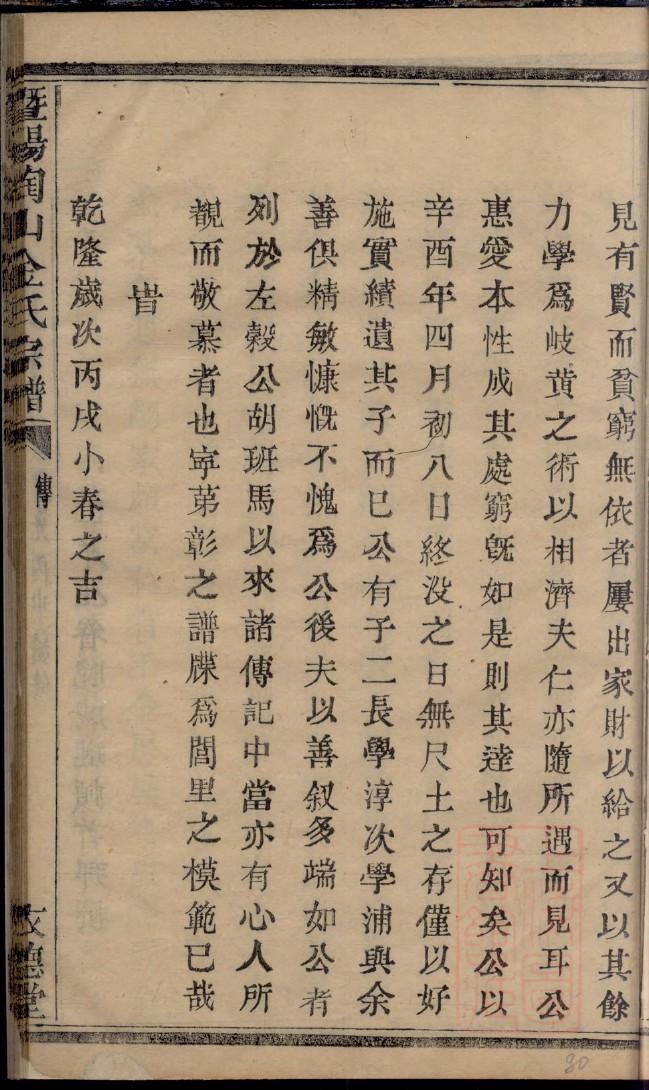 見有賢而貧窮無依者屢出家財以給之又以其餘
力學爲岐黄之術以相濟夫仁亦隨所遇而見耳公
惠愛本性成其處窮旣如是則其達也可知矣公以
辛酉年四月初八日終没之日無尺土之存僅以好
施實績遺其子而已公有子二長學淳次學浦與余
善俱精敏慷慨不愧爲公後夫以善叙多端如公者
列於左穀公胡班馬以來諸傳記中當亦有心人所
覩而敬慕者也寧苐彰之譜牒爲閭里之模範已哉
旹
乾隆歲次丙戌小春之吉
暨陽陶山金氏宗譜
傳
文德堂
30